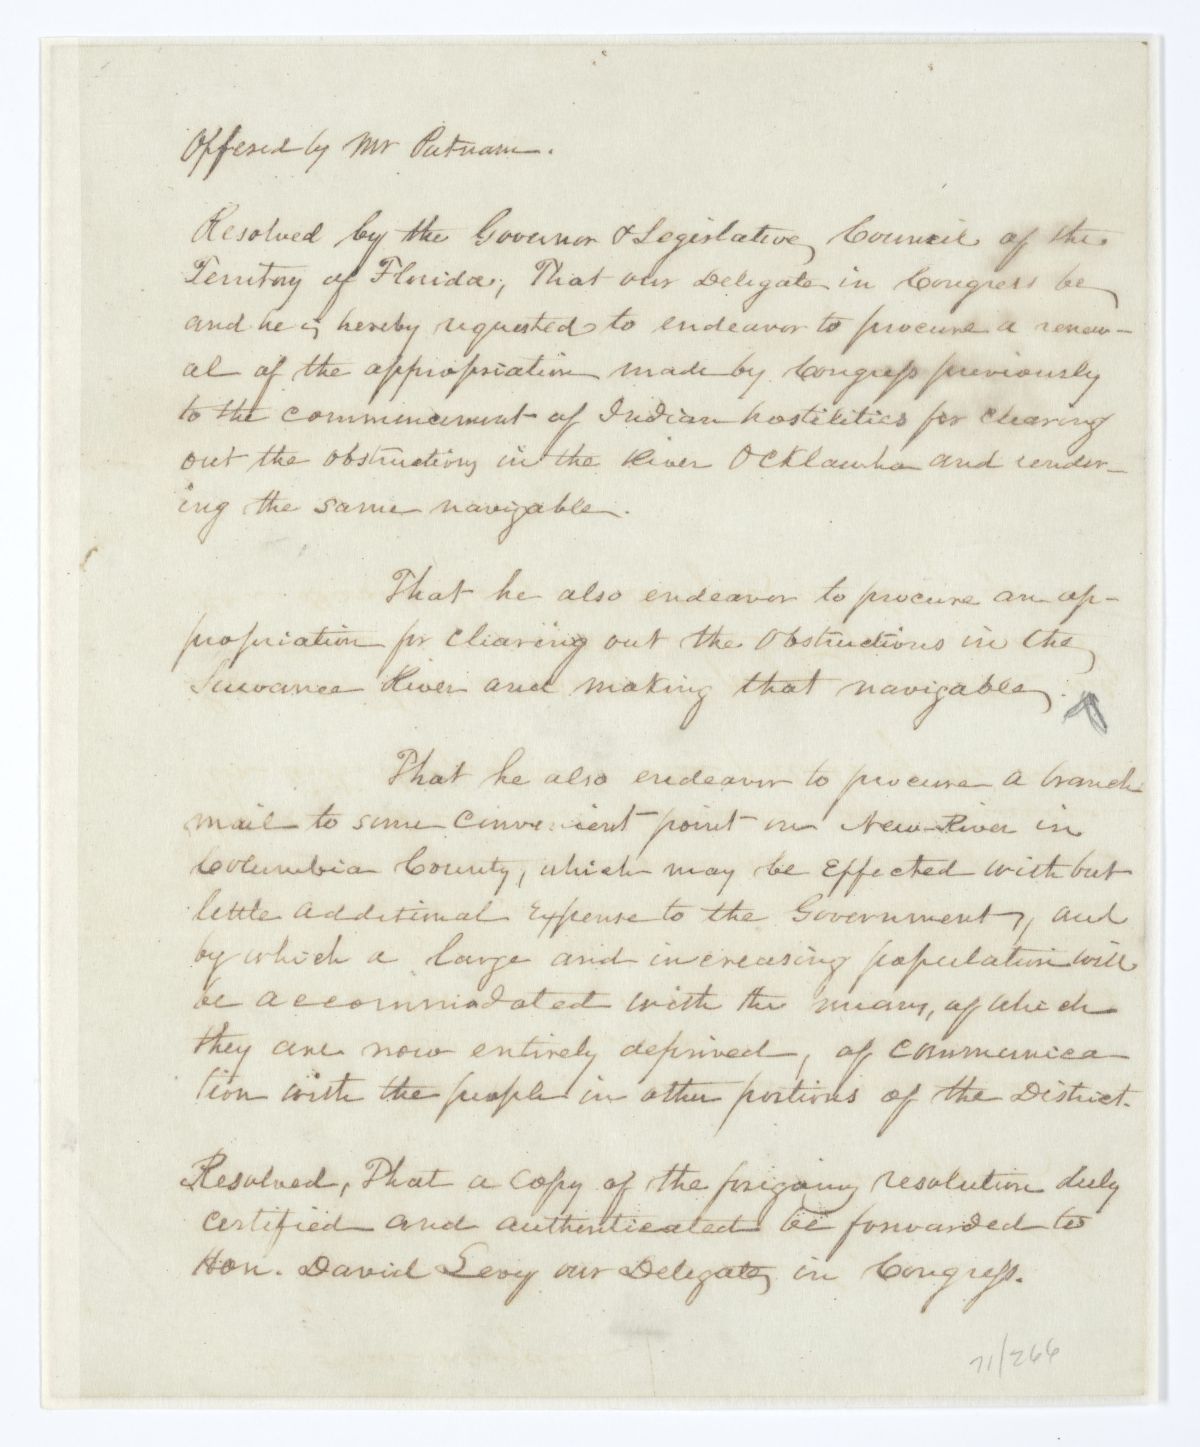 Offered by Mr Putnam.
Resolved by the Governor & Legislative Council of the
Territory of Florida, That our Delegate in Congress be
and he is hereby requested to endeavor to procure a renew-
al of the appropriation made by Congress previously
to the commencement of Indian hostilities for clearing
out the obstructions in the River Ocklawha and render-
ing the same navigable.
That he also endeavor to procure an ap-
propriation for clearing out the obstructions in the
Suwanee River and making that navigable.
That he also endeavor to procure a branch
mail to some convenient point on New River in
Columbia County, which may be effected with but
little additional expense to the Government, and
by which a large and increasing population will
be accommodated with the means, of which
they are now entirely deprived, of communica-
tion with the people in other portions of the District.
Resolved, That a copy of the foregoing resolution duly
certified and authenticated be forwarded to
Hon. David Levy our Delegate in Congress.
71/266